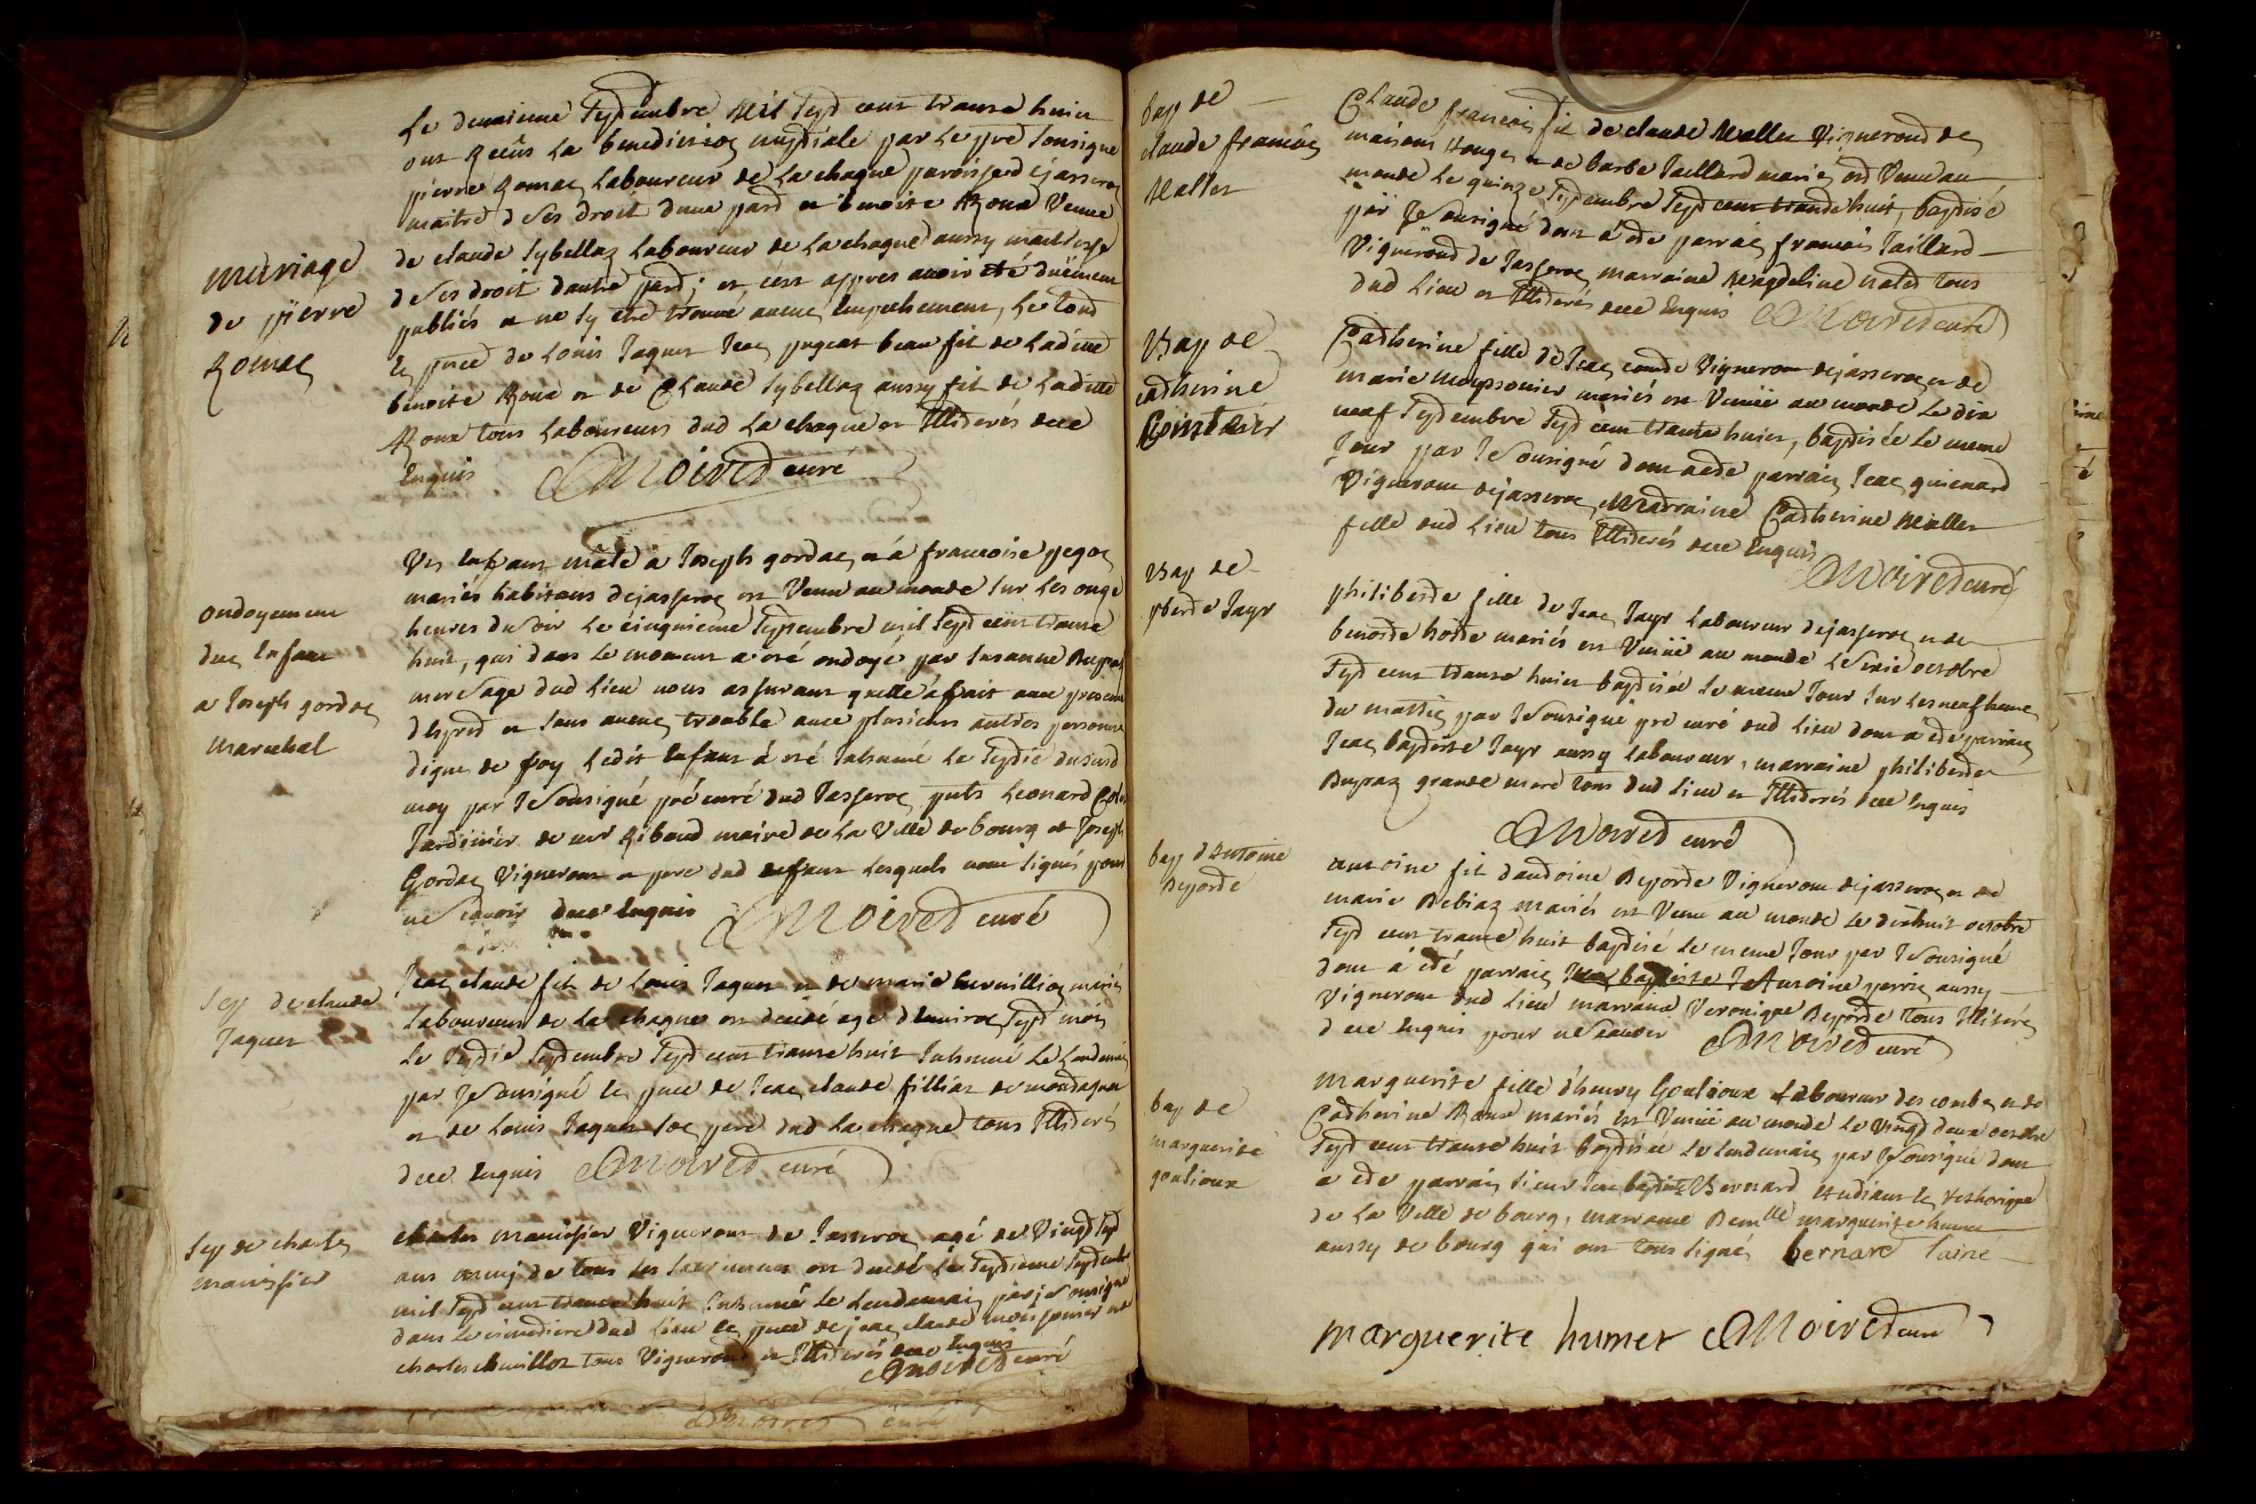 mariage
de pierre
Romac
Le deuxieme Septembre Mil Sept cent trante huict
ont Recûs La benediction nuptiale par Le pre Sousigné
pierre Romac Laboureur de La chagne paroisse de Jasseron
maitre de Ses droit dune part et benoite Roux Veuve
de claude Sybellaz Laboureur de La chagne aussy maitresse
de Ses droit dautre part; et cest appres avoir été duëment
publiés et ne Sy etre trouvé aucun Empechement, Le tout
En pnce de Louis Jaquet Jean pugeat beau fil de Ladite
benoite Roux et de Claude Sybellaz aussy fil de Ladite
Roux tous Laboureurs dud La chagne et Illiterés de ce
Enquis Moiret curé
ondoyement
dun Enfant
a Joseph gordac
marechal
Un Enfant mâle a Joseph gordac et á francoise
mariés habitans de jasseron est Venu au monde Sur Les onze
heures du Soir Le cinquieme Septembre mil Sept cent trante
huit, qui dans Le moment a été ondoyé par Susanne Dupras
mere Sage dud Lieu nous assurant quelle á fait avec presence
desprit et Sans aucun trouble avec plusieurs autres personne
digne de foy Ledit Enfant á été Inhumé Le Septie dususd
moy par Je Sousigné pre curé dud Jasseron pnts Leonard
Jardinier de mr Riboud maire de La Ville de bourg et Joseph
Gordac Vigneron et pere dud Enfant Lesquels nont Signés pour
ne Scavoir de ce Enquis Moiret curé
Sep de claude
Jaquet
Jean claude fil de Louis Jaquet et de marie mariés
Laboureurs de La chagne est decedé agé denviron Sept mois
Le Septie Septembre Sept cent trante huit Inhumé Le Lendemain
par Je Sousigné En pnce de Jean claude filliat de montagnat
et de Louis Jaquet Son pere dud La chagne tous Illiterés
de ce Enquis Moiret curé
Sep de charles
manissier
charles manissier Vigneron de Jasseron agé de Vingt Sept
ans muny de tous Les Sacremens est decedé Le Septieme Septembre
mil Sept cent trante huit Inhumé Le Lendemain par je Sousigné
dans Le cimetiere dud Lieu En pnce de jean claude moissonier et
charles chevillot tous Vignerons et Illiterés de ce Enquis
Moiret curé
Moiret curé
bap de
claude francois
Mallet
Claude francois fil de claude Mallet Vigneron des
maisons Rouges et de barbe Taillard mariés est Venu au
monde Le quinze Septembre Sept cent trante huit, baptisé
par Je Sousigné dont á été parrain francois Taillard
Vigneron de Jasseron marraine Magdeline tous
dud Lieu et Illiterés de ce Enquis Moiret curé
Bap de
catherine
Comte
Catherine fille de Jean comte Vigneron de jasseron et de
marie Moyssonier mariés est Venuë au monde Le dix
neuf Septembre Sept cent trante huict, baptisée Le meme
Jour par Je Sousigné dont a été parrain Jean guienard
Vigneron de jasseron, Marraine Catherine Mallet
fille dud Lieu tous Illiterés de ce Enquis
Moiret curé
Bap de
pberte Jayr
philiberte fille de Jean Jayr Laboureur de jasseron et de
benoite mariés est Venuë au monde Le octobre
Sept cent trante huict baptisée Le meme Jour Sur Les neuf heures
du mattin par Je Sousigné pre curé dud Lieu dont a été parrain
Jean baptiste Jayr aussy Laboureur, marraine philiberte
Dupraz grande mere tous dud Lieu et Illiterés de ce Enquis
Moiret curé
bap dAntoine
Deporte
antoine fil dantoine Deporte Vigneron de jasseron et de
marie Debiaz mariés est Venu au monde Le dixhuit octobre
Sept cent trante huit baptisé Le meme Jour par Je Sousigné
dont á été parrain Jean baptiste Antoine perrin aussy
Vigneron dud Lieu marraine Veronique Deporte tous Illiterés
de ce Enquis pour ne Scavoir Moiret curé
bap de
marguerite
goulioux
Marguerite fille dhenry Goulioux Laboureur des combes et de
Catherine Roux mariés est Venuë au monde Le Vingt deux octobre
Sept cent trante huit baptisée Le Lendemain par Je Sousigné dont
a été parrain Sieur Jean baptiste Bernard etudiant En rethorique
de La Ville de bourg, marraine Demlle marguerite humet
aussy de bourg qui ont tous Signés bernard lainé
marguerite humet Moiret curé